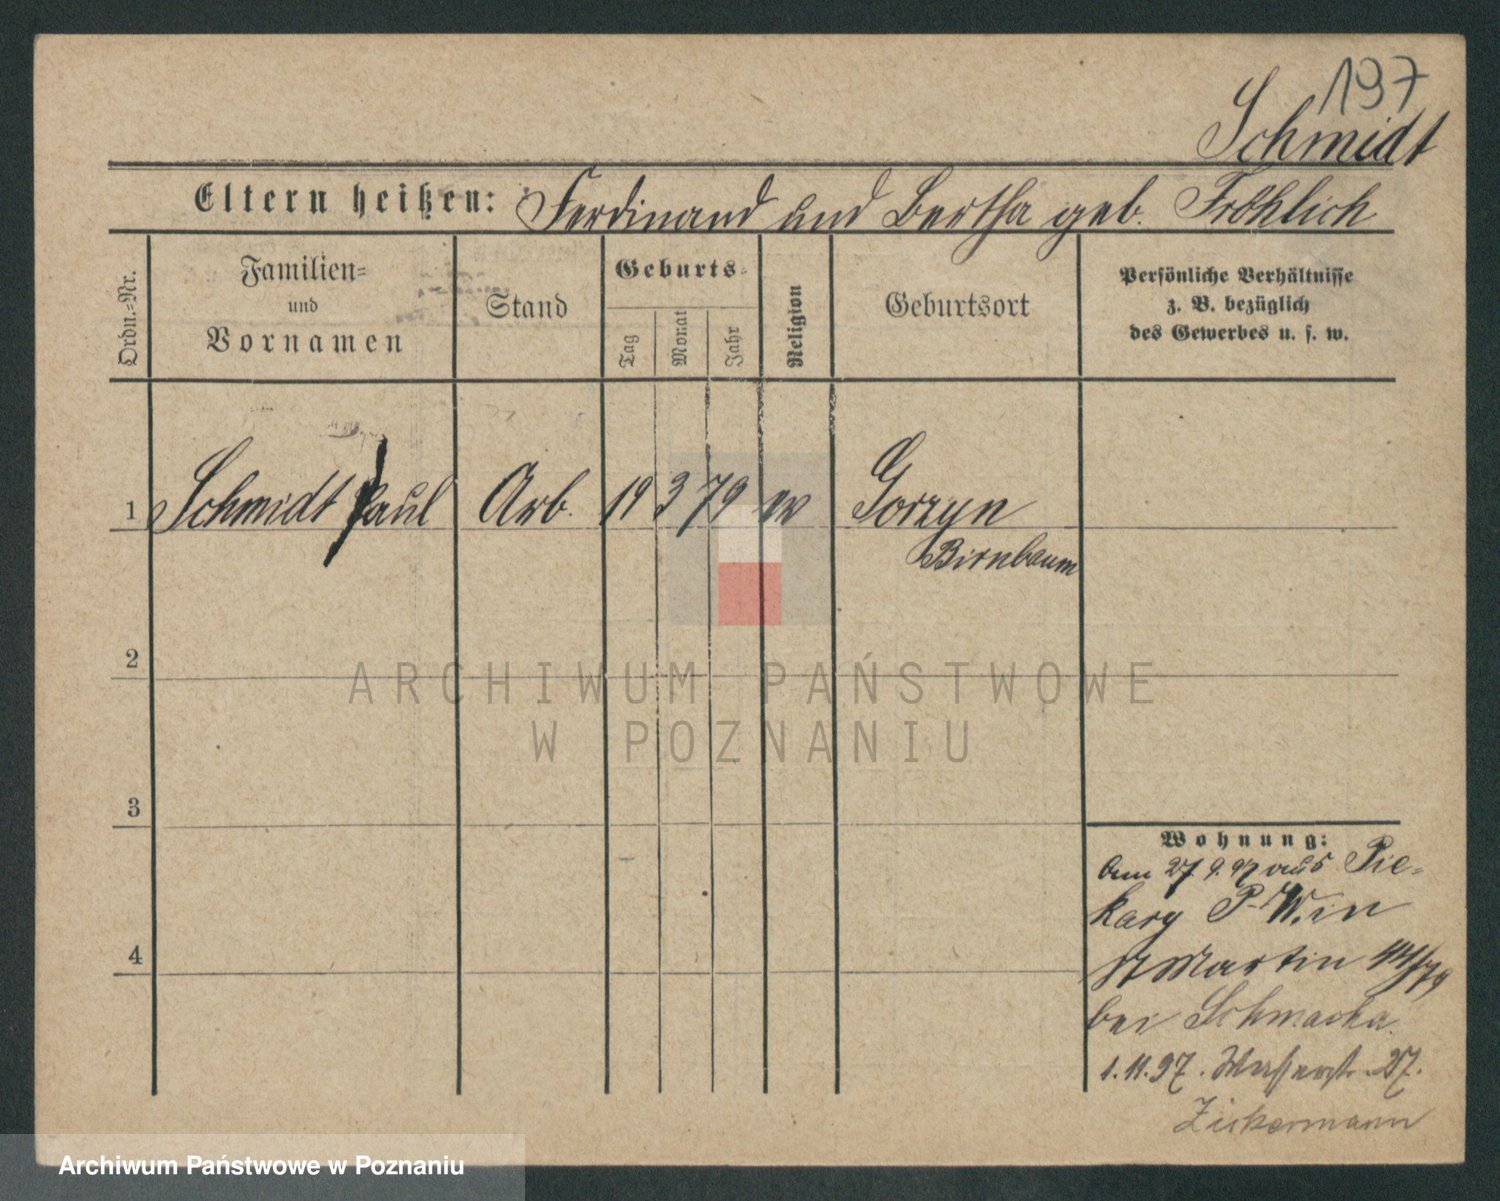 197
Schmidt
Eltern heißen: Ferdinand und Bertha geb. Fröhlich
Ordn.-Nr.
Familien-
und
Vornamen
Stand
Geburts-
Tag
Monat
Jahr
Religion
Geburtsort
Persönliche Verhältnisse
z. B. bezüglich
des Gewerbes u. s. w.
1 Schmidt Paul Arb. 19 3 79 ev Gorzyn
Birnbaum
2
ARCHIWUM PAŃSTWOWE
W POZNANIU
3
4
Wohnung:
Am 27. 9. 97 aus Pie-
kary P. W. in
St Martin
bei Schmacka
1. 11. 97. Wasserst. 27.
Zickermann
Archiwum Państwowe w Poznaniu